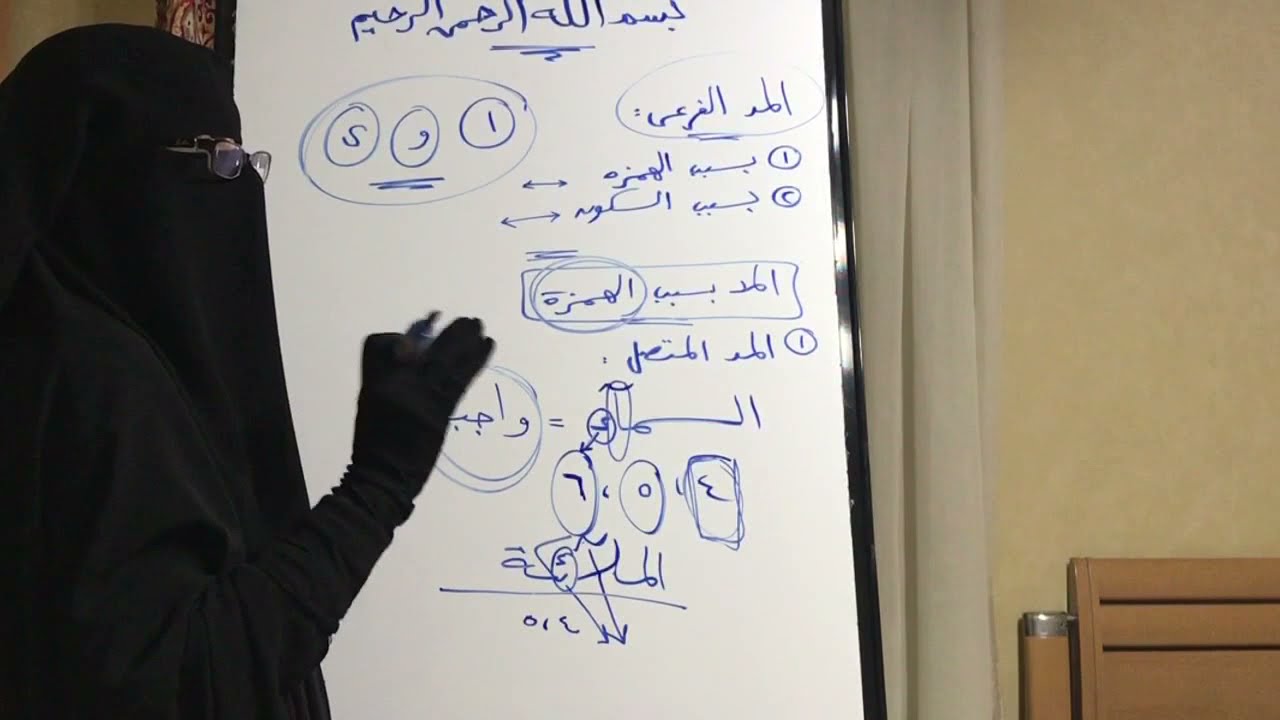 بسم الله الرحمن الرحيم
المد الفرعي :
ا و ي
① بسبب الهمزه ↔
② بسبب السكون ↔
المد بسبب الهمزة
① المد المتصل :
السماء = واجب
٤ ، ٥ ، ٦
الملائكة
٤ ، ٥